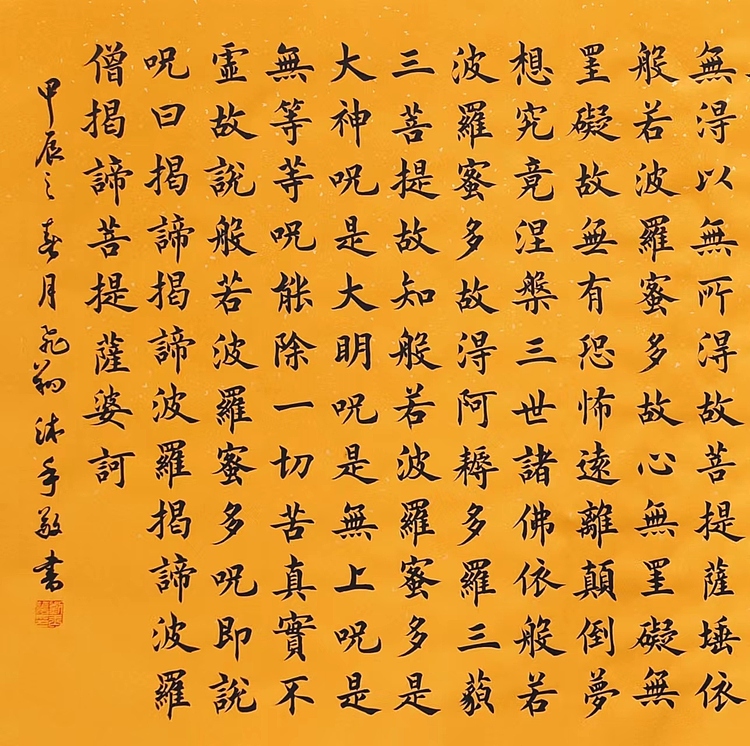 無得以無所得故菩提薩埵依
般若波羅蜜多故心無罣礙無
罣礙故無有恐怖遠離顛倒夢
想究竟涅槃三世諸佛依般若
波羅蜜多故得阿耨多羅三藐
三菩提故知般若波羅蜜多是
大神呪是大明呪是無上呪是
無等等呪能除一切苦真實不
虛故說般若波羅蜜多呪即說
呪曰揭諦揭諦波羅揭諦波羅
僧揭諦菩提薩婆訶
甲辰之春月飛沐手敬書